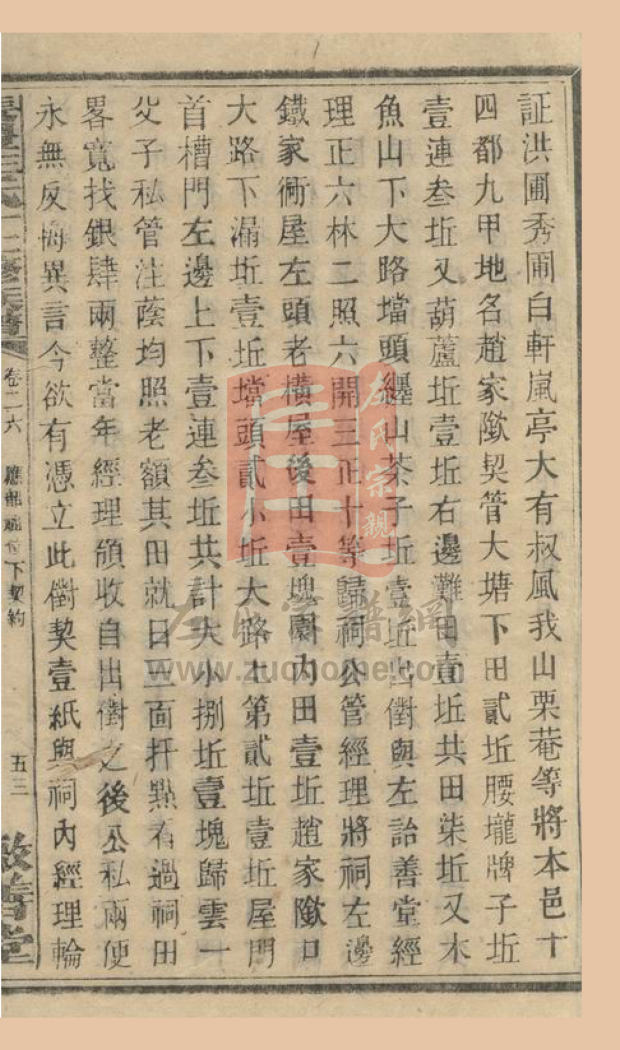 証洪圃秀圃白軒嵐亭大有叔風我山栗菴等將本邑十
四都九甲地名趙家陂契管大塘下田貳坵腰壠牌子坵
壹連叁坵又葫蘆坵壹坵右邊難田壹坵共田柒坵又木
魚山下大路壋頭纏山茶子坵壹坵出儅與左詒善堂經
理正六林二照六開三正十等歸祠公管經理將祠左邊
鐵家衕屋左頭老橫屋後田壹塊園內田壹坵趙家陂口
大路下漏坵壹坵壋頭貳小坵大路上第貳坵壹坵屋門
首槽門左邊上下壹連叁坵共計大小捌坵壹塊歸雲一
父子私管注蔭均照老額其田就日三面扦點有過祠田
畧寬找銀肆兩整當年經理領收自出儅之後公私兩便
永無反悔異言今欲有憑立此儅契壹紙與祠內經理輪
卷二六 下契約 五三
左氏宗親
左氏家譜網
www.zuohome.com